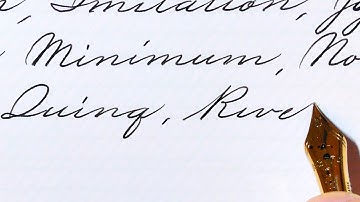 Imitation,
Minimum, No
Quinq, Rive